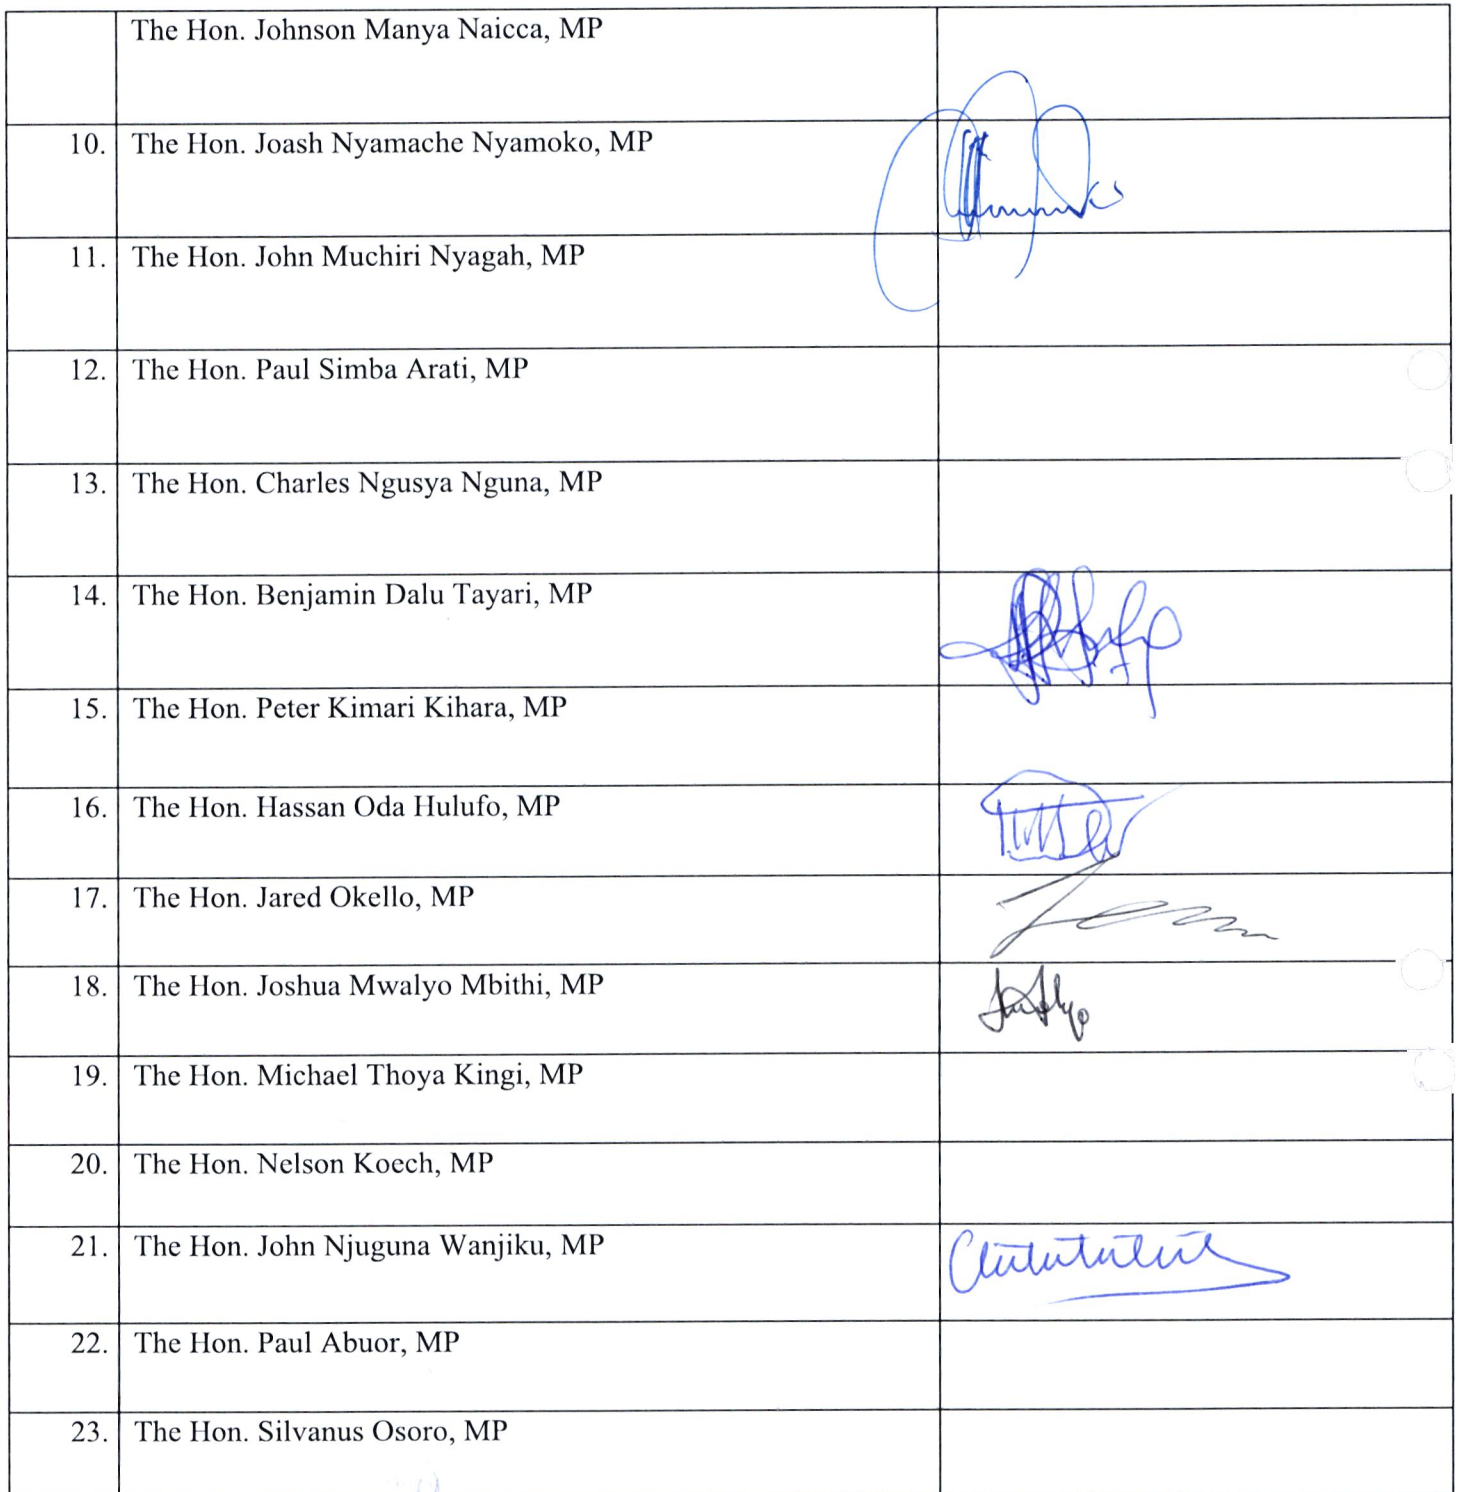 The Hon. Johnson Manya Naicca, MP
10. The Hon. Joash Nyamache Nyamoko, MP
11. The Hon. John Muchiri Nyagah, MP
12. The Hon. Paul Simba Arati, MP
13. The Hon. Charles Ngusya Nguna, MP
14. The Hon. Benjamin Dalu Tayari, MP
15. The Hon. Peter Kimari Kihara, MP
16. The Hon. Hassan Oda Hulufo, MP
17. The Hon. Jared Okello, MP
18. The Hon. Joshua Mwalyo Mbithi, MP
19. The Hon. Michael Thoya Kingi, MP
20. The Hon. Nelson Koech, MP
21. The Hon. John Njuguna Wanjiku, MP
22. The Hon. Paul Abuor, MP
23. The Hon. Silvanus Osoro, MP